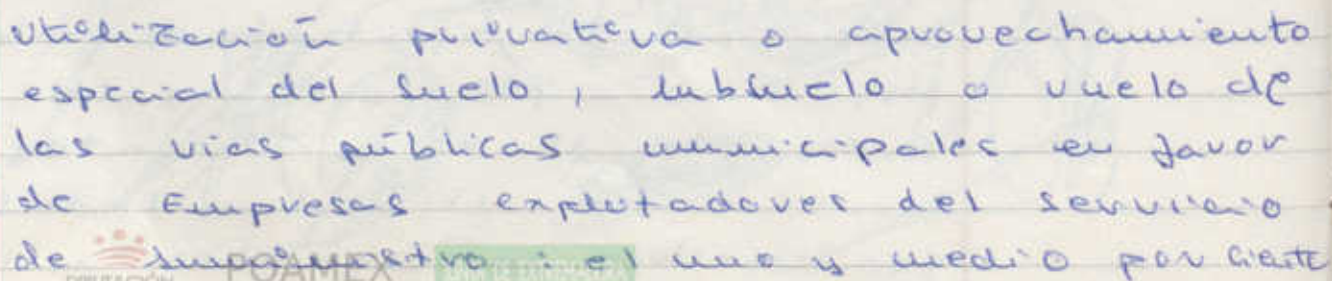 utilización privativa o aprovechamiento
especial del suelo, subsuelo o vuelo de
las vias públicas municipales en favor
de Empresas explotadoras del servicio
de suministro: el uno y medio por ciento
DIPUTACIÓN POAMEX